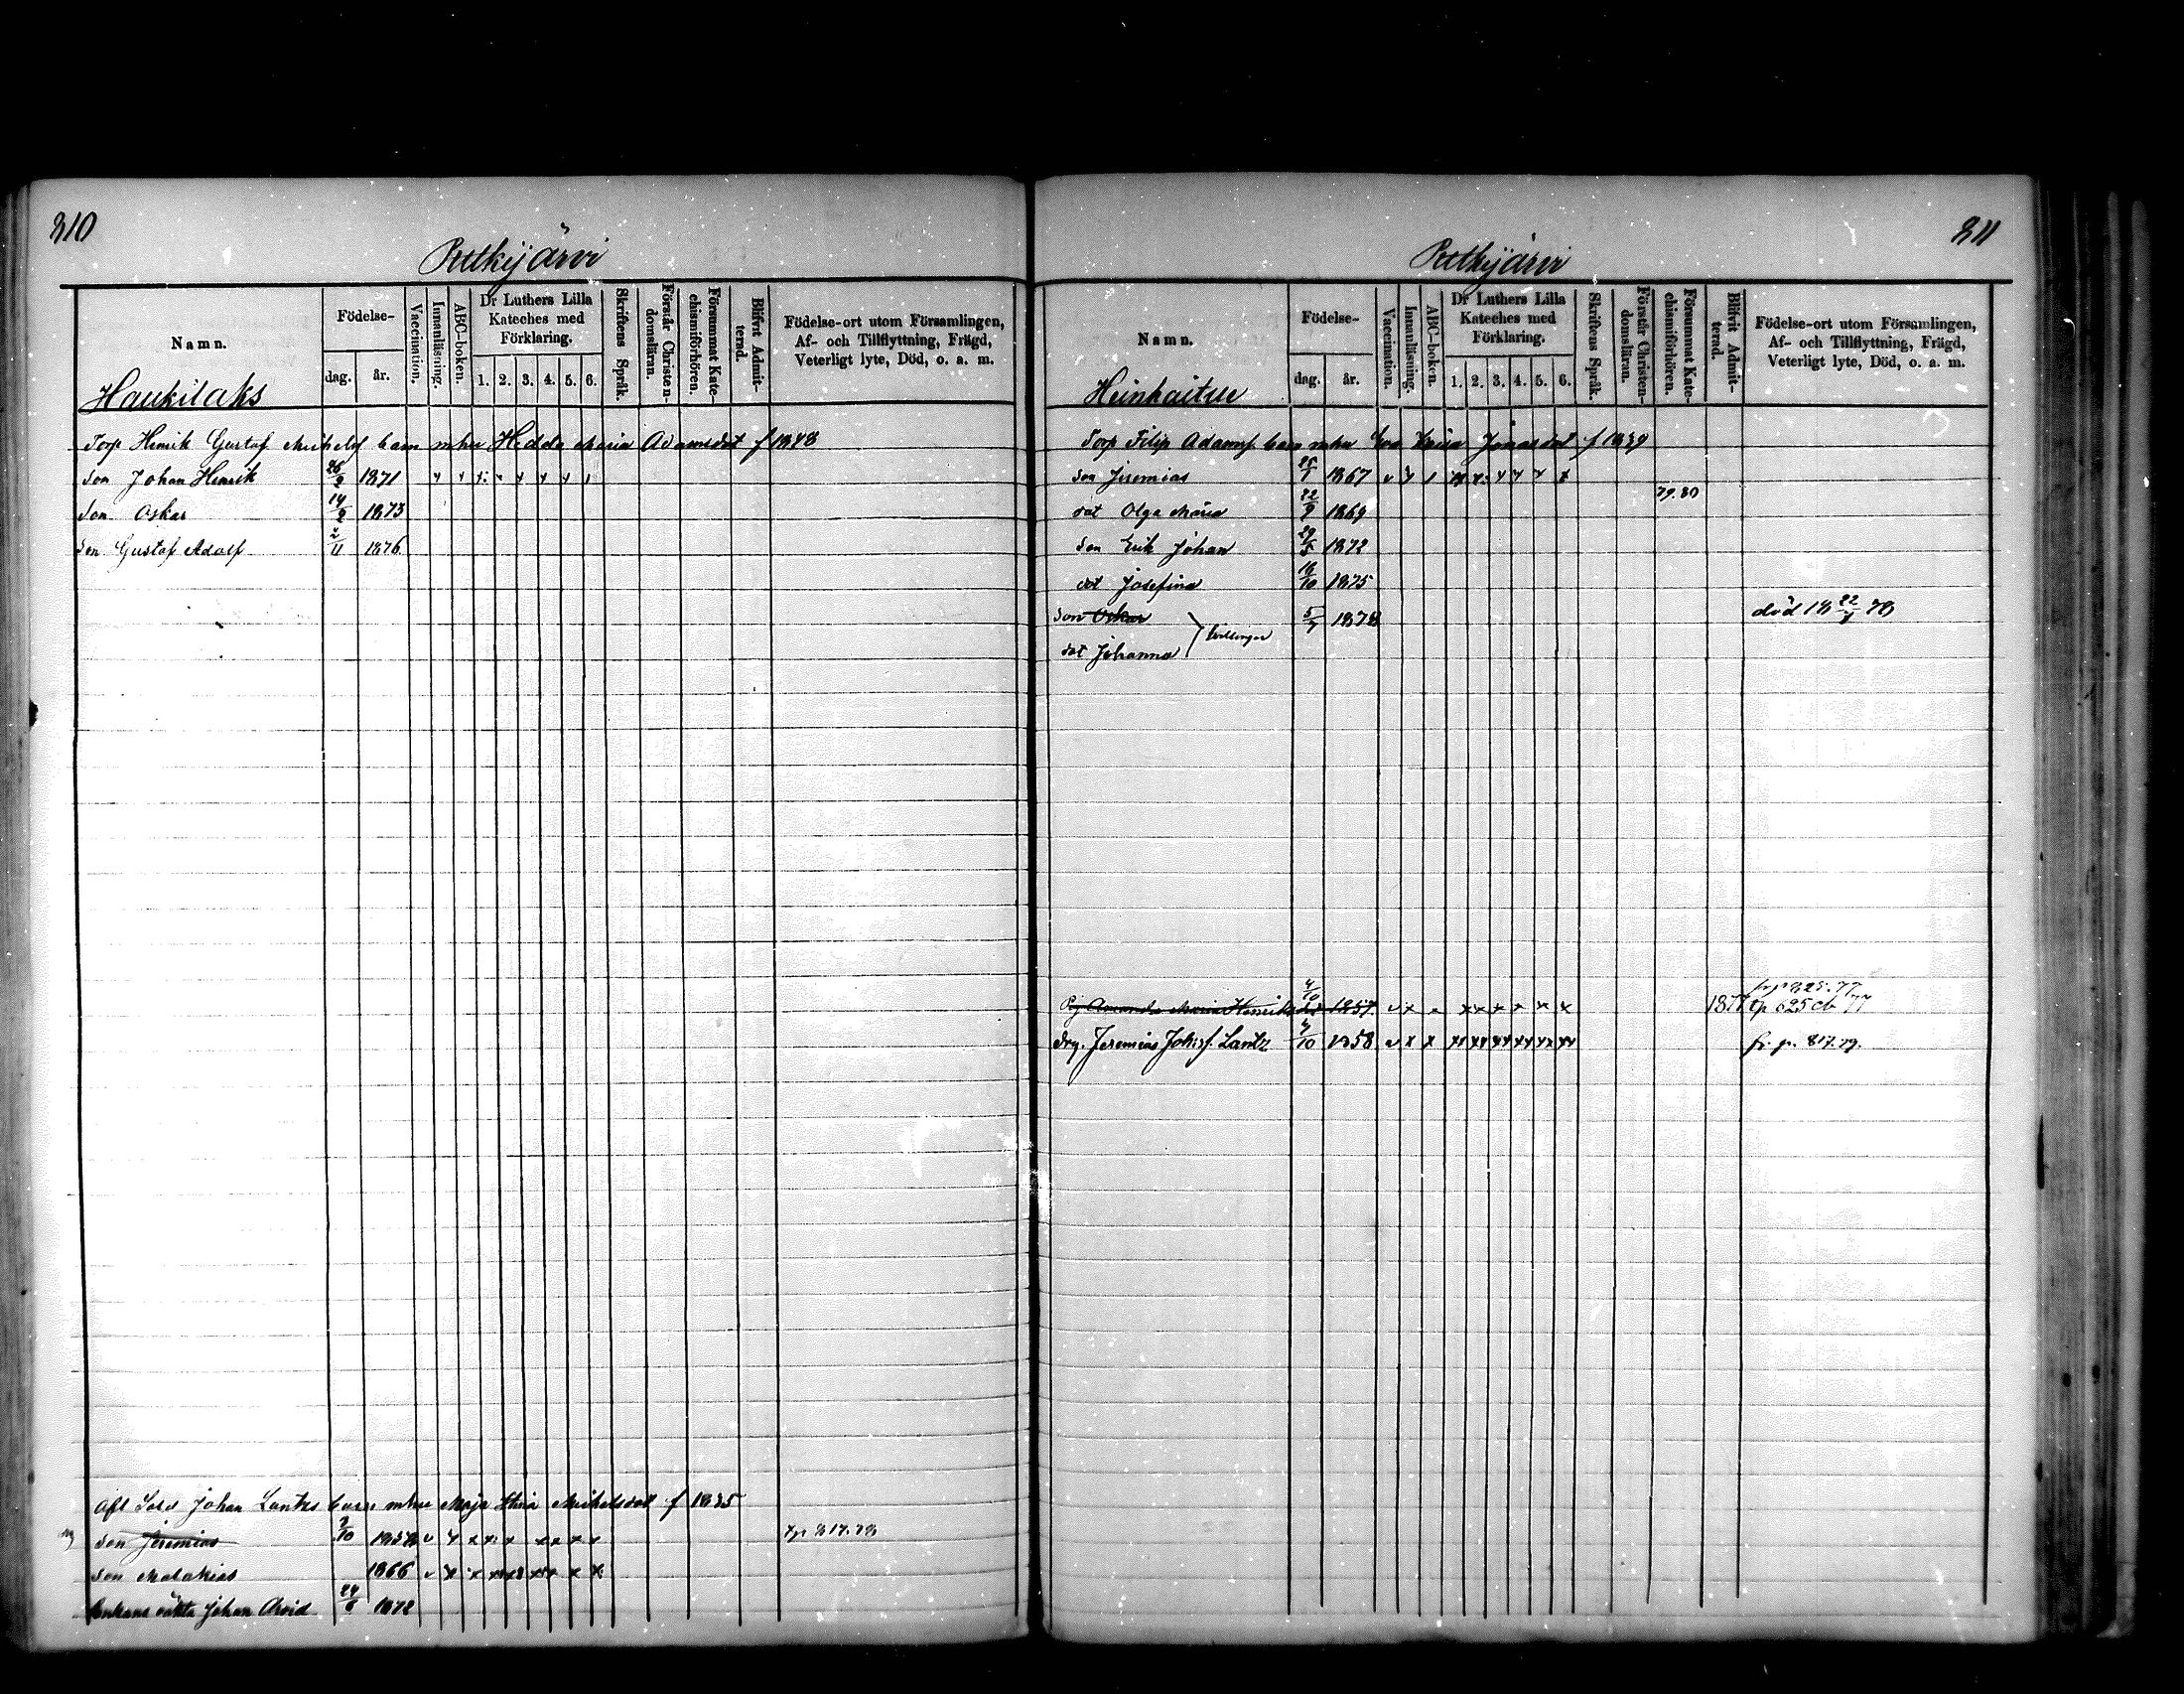 810
Putkijärvi
Namn.
Födelse-
dag.
år.
Vaccination.
Innanläsning.
ABC-boken.
Dr Luthers Lilla
Kateches med
Förklaring.
1. 2. 3. 4. 5. 6.
Skriftens Språk.
Förstår Christen-
domsläran.
Försummat Kate-
chismiförhören.
Blifvit Admit-
terad.
Födelse-ort utom Församlingen,
Af- och Tillflyttning, Frägd,
Veterligt lyte, Död, o. a. m.
Haukilaks
Torp Henrik Gustaf Michelsf barn mhu Hedda Maria Adamsdot f 1848
Son Johan Henrik 1871
Son Oskar 14/2 1873
Son Gustaf Adolf 2/11 1876
Afl Johan Lantz barn mhu Maja Stina Michelsdot f 1835
Son Jeremias 1858 v
Son Malakias 1866 v
Enkans oäkta Johan Arvid 24/6 1872
811
Putkijärvi
Namn.
Födelse-
dag.
år.
Vaccination.
Innanläsning.
ABC-boken.
Dr Luthers Lilla
Kateches med
Förklaring.
1. 2. 3. 4. 5. 6.
Skriftens Språk.
Förstår Christen-
domsläran.
Försummat Kate-
chismiförhören.
Blifvit Admit-
terad.
Födelse-ort utom Församlingen,
Af- och Tillflyttning, Frägd,
Veterligt lyte, Död, o. a. m.
Heinhaitue
Torp Filip Adamsf barn mhu Eva Lovisa Jonasdot f 1839
Son Jeremias 1867 v
79.80
dot Olga Maria 22/9 1869
Son Erik Johan 29/5 1872
dot Josefina 18/10 1875
Son Oskar 5/7 1878 död 18 22/7 78
dot Johanna } tvillingar
fr p 825.77
Pig Amanda Maria Henriksdot 4/10 1857 v 1877 tp 625 cb 77
Drg. Jeremias Johisf. Lantz 1858 v fr. p. 817.79.